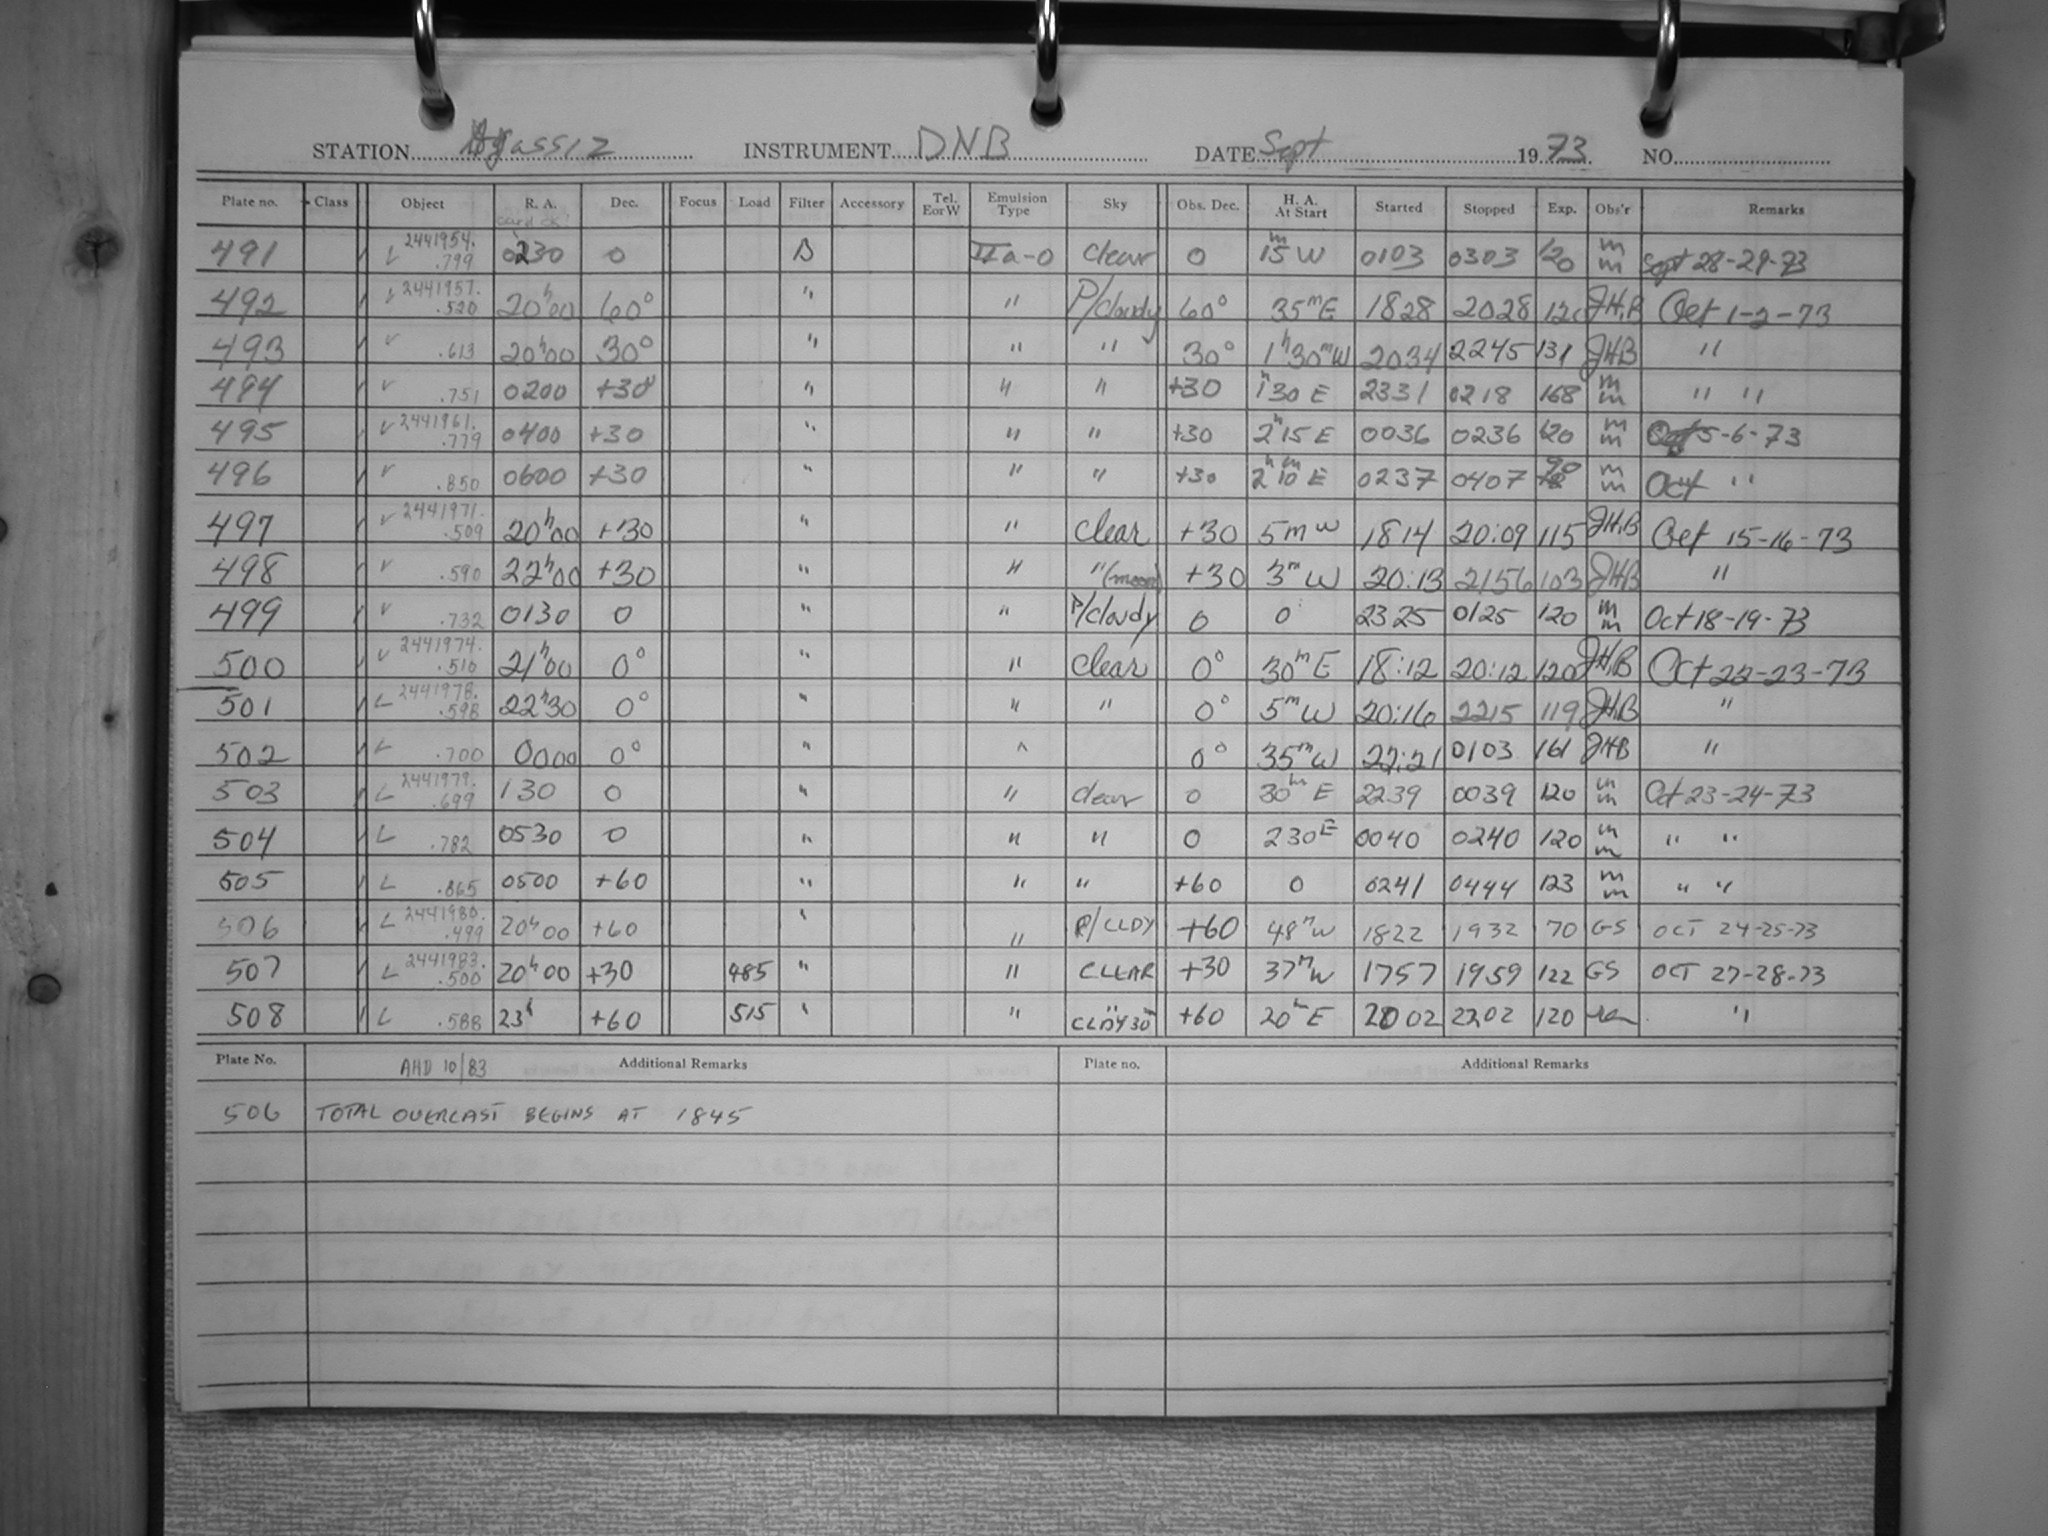 STATION Agassiz INSTRUMENT DNB DATE Sept 1973 NO.
Plate no. Class Object R. A. Dec. Focus Load Filter Accessory Tel. E or W Emulsion Type Sky Obs. Dec. H. A. At Start Started Stopped Exp. Obs'r Remarks
491 L 2441954. .799 0230 0 B IIa-0 clear 0 15m W 0103 0303 120 mm Sept 28-29-73
492 v 2441957. .520 20h00 60° " " P/cloudy 60° 35m E 1828 2028 120 JHB Oct 1-2-73
493 v .613 20h00 30° " " " 30° 1h30m W 2034 2245 131 JHB "
494 v .751 0200 +30° " " " +30 1h30 E 2331 0218 168 mm " "
495 v 2441961. .779 0400 +30 " " " +30 2h15 E 0036 0236 120 mm Oct 5-6-73
496 v .850 0600 +30 " " " +30 2h10m E 0237 0407 90 mm Oct "
497 v 2441971. .509 20h00 +30 " " clear +30 5m W 1814 20:09 115 JHB Oct 15-16-73
498 v .590 22h00 +30 " " "(moon) +30 3m W 20:13 2156 103 JHB "
499 v .732 0130 0 " " P/cloudy 0 0 2325 0125 120 mm Oct 18-19-73
500 v 2441974. .510 21h00 0° " " clear 0° 30m E 18:12 20:12 120 JHB Oct 22-23-73
501 L 2441978. .598 22h30 0° " " " 0° 5m W 20:16 2215 119 JHB "
502 L .700 0000 0° " " 0° 35m W 22:21 0103 161 JHB "
503 L 2441979. .699 130 0 " " clear 0 30m E 2239 0039 120 mm Oct 23-24-73
504 L .782 0530 0 " " " 0 230 E 0040 0240 120 mm " "
505 L .865 0500 +60 " " " +60 0 0241 0444 123 mm " "
506 L 2441980. .499 20h00 +60 " " P/CLDY +60 48m W 1822 1932 70 GS OCT 24-25-73
507 L 2441983. .500 20h00 +30 485 " " CLEAR +30 37m W 1757 1959 122 GS OCT 27-28-73
508 L .588 23h +60 515 " " CLDY 30m +60 20m E 2002 2202 120 "
Plate No. AHD 10/83 Additional Remarks Plate no. Additional Remarks
506 TOTAL OVERCAST BEGINS AT 1845